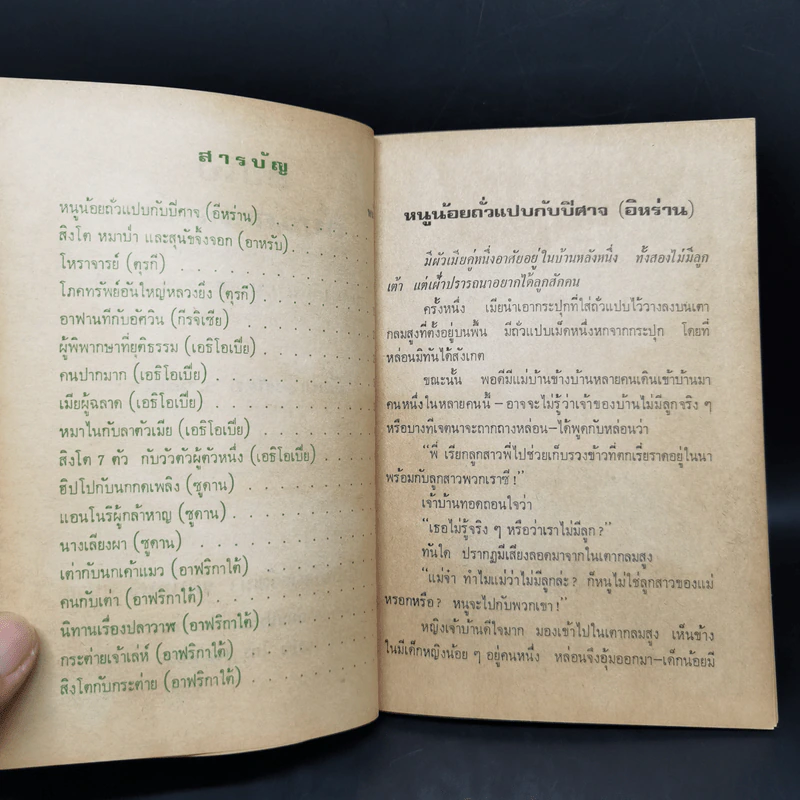 สารบัญ
หนูน้อยถั่วแปบกับปีศาจ (อีหร่าน) . . . . . . . .
สิงโต หมาป่า และสุนัขจิ้งจอก (อาหรับ) . . . . .
โหราจารย์ (ตุรกี) . . . . . . . . . . . .
โภคทรัพย์อันใหญ่หลวงยิ่ง (ตุรกี) . . . . . . . .
อาฟานทีกับอัศวิน (กีร์จิเซีย) . . . . . . . . .
ผู้พิพากษาที่ยุติธรรม (เอธิโอเปีย) . . . . . . .
คนปากมาก (เอธิโอเปีย) . . . . . . . . . .
เมียผู้ฉลาด (เอธิโอเปีย) . . . . . . . . . .
หมาไนกับลาตัวเมีย (เอธิโอเปีย) . . . . . . . .
สิงโต 7 ตัว กับวัวตัวผู้ตัวหนึ่ง (เอธิโอเปีย) . . .
ฮิปโปกับนกกดเพลิง (ซูดาน) . . . . . . . . .
แอนโนรีผู้กล้าหาญ (ซูดาน) . . . . . . . . .
นางเลียงผา (ซูดาน) . . . . . . . . . . .
เต่ากับนกเค้าแมว (อาฟริกาใต้) . . . . . . . .
คนกับเต่า (อาฟริกาใต้) . . . . . . . . . .
นิทานเรื่องปลาวาฬ (อาฟริกาใต้) . . . . . . .
กระต่ายเจ้าเล่ห์ (อาฟริกาใต้) . . . . . . . .
สิงโตกับกระต่าย (อาฟริกาใต้) . . . . . . . .
หนูน้อยถั่วแปบกับปีศาจ (อิหร่าน)
มีผัวเมียคู่หนึ่งอาศัยอยู่ในบ้านหลังหนึ่ง ทั้งสองไม่มีลูก
เต้า แต่เฝ้าปรารถนาอยากได้ลูกสักคน
ครั้งหนึ่ง เมียนำเอากระปุกที่ใส่ถั่วแปบไว้วางลงบนเตา
กลมสูงที่ตั้งอยู่บนพื้น มีถั่วแปบเม็ดหนึ่งหกจากกระปุก โดยที่
หล่อนมิทันได้สังเกต
ขณะนั้น พอดีมีแม่บ้านข้างบ้านหลายคนเดินเข้าบ้านมา
คนหนึ่งในหลายคนนี้—อาจจะไม่รู้ว่าเจ้าของบ้านไม่มีลูกจริง ๆ
หรือบางทีเจตนาจะถากถางหล่อน—ได้พูดกับหล่อนว่า
“พี่ เรียกลูกสาวพี่ไปช่วยเก็บรวงข้าวที่ตกเรี่ยราดอยู่ในนา
พร้อมกับลูกสาวพวกเราซี!”
เจ้าบ้านทอดถอนใจว่า
“เธอไม่รู้จริง ๆ หรือว่าเราไม่มีลูก?”
ทันใด ปรากฏมีเสียงลอดมาจากในเตากลมสูง
“แม่จ๋า ทำไมแม่ว่าไม่มีลูกล่ะ? ก็หนูไม่ใช่ลูกสาวของแม่
หรอกหรือ? หนูจะไปกับพวกเขา!”
หญิงเจ้าบ้านดีใจมาก มองเข้าไปในเตากลมสูง เห็นข้าง
ในมีเด็กหญิงน้อย ๆ อยู่คนหนึ่ง หล่อนจึงอุ้มออกมา—เด็กน้อยมี